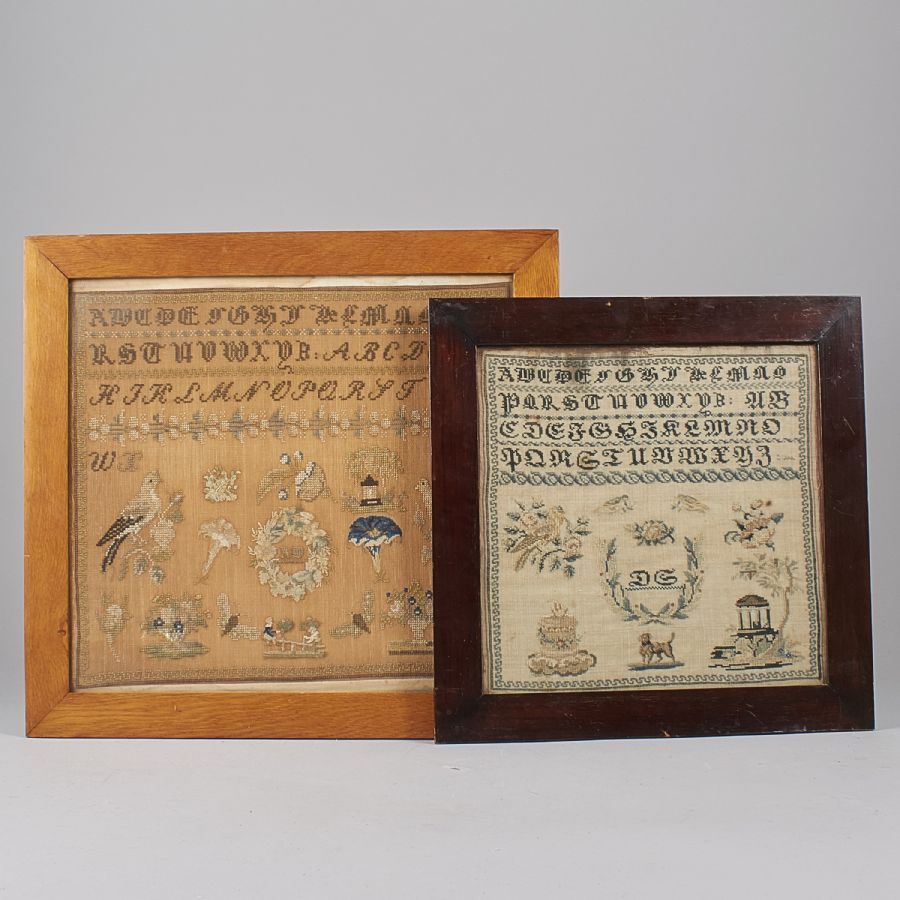 ABCDEFGHIKLMN
RSTUVWXYZ: ABCD
HIKLMNOPQRST
WX
ABCDEFGHIKLMNO
PQRSTUVWXYZ: AB
CDEFGHIKLMNO
PQRSTUVWXYZ
DS